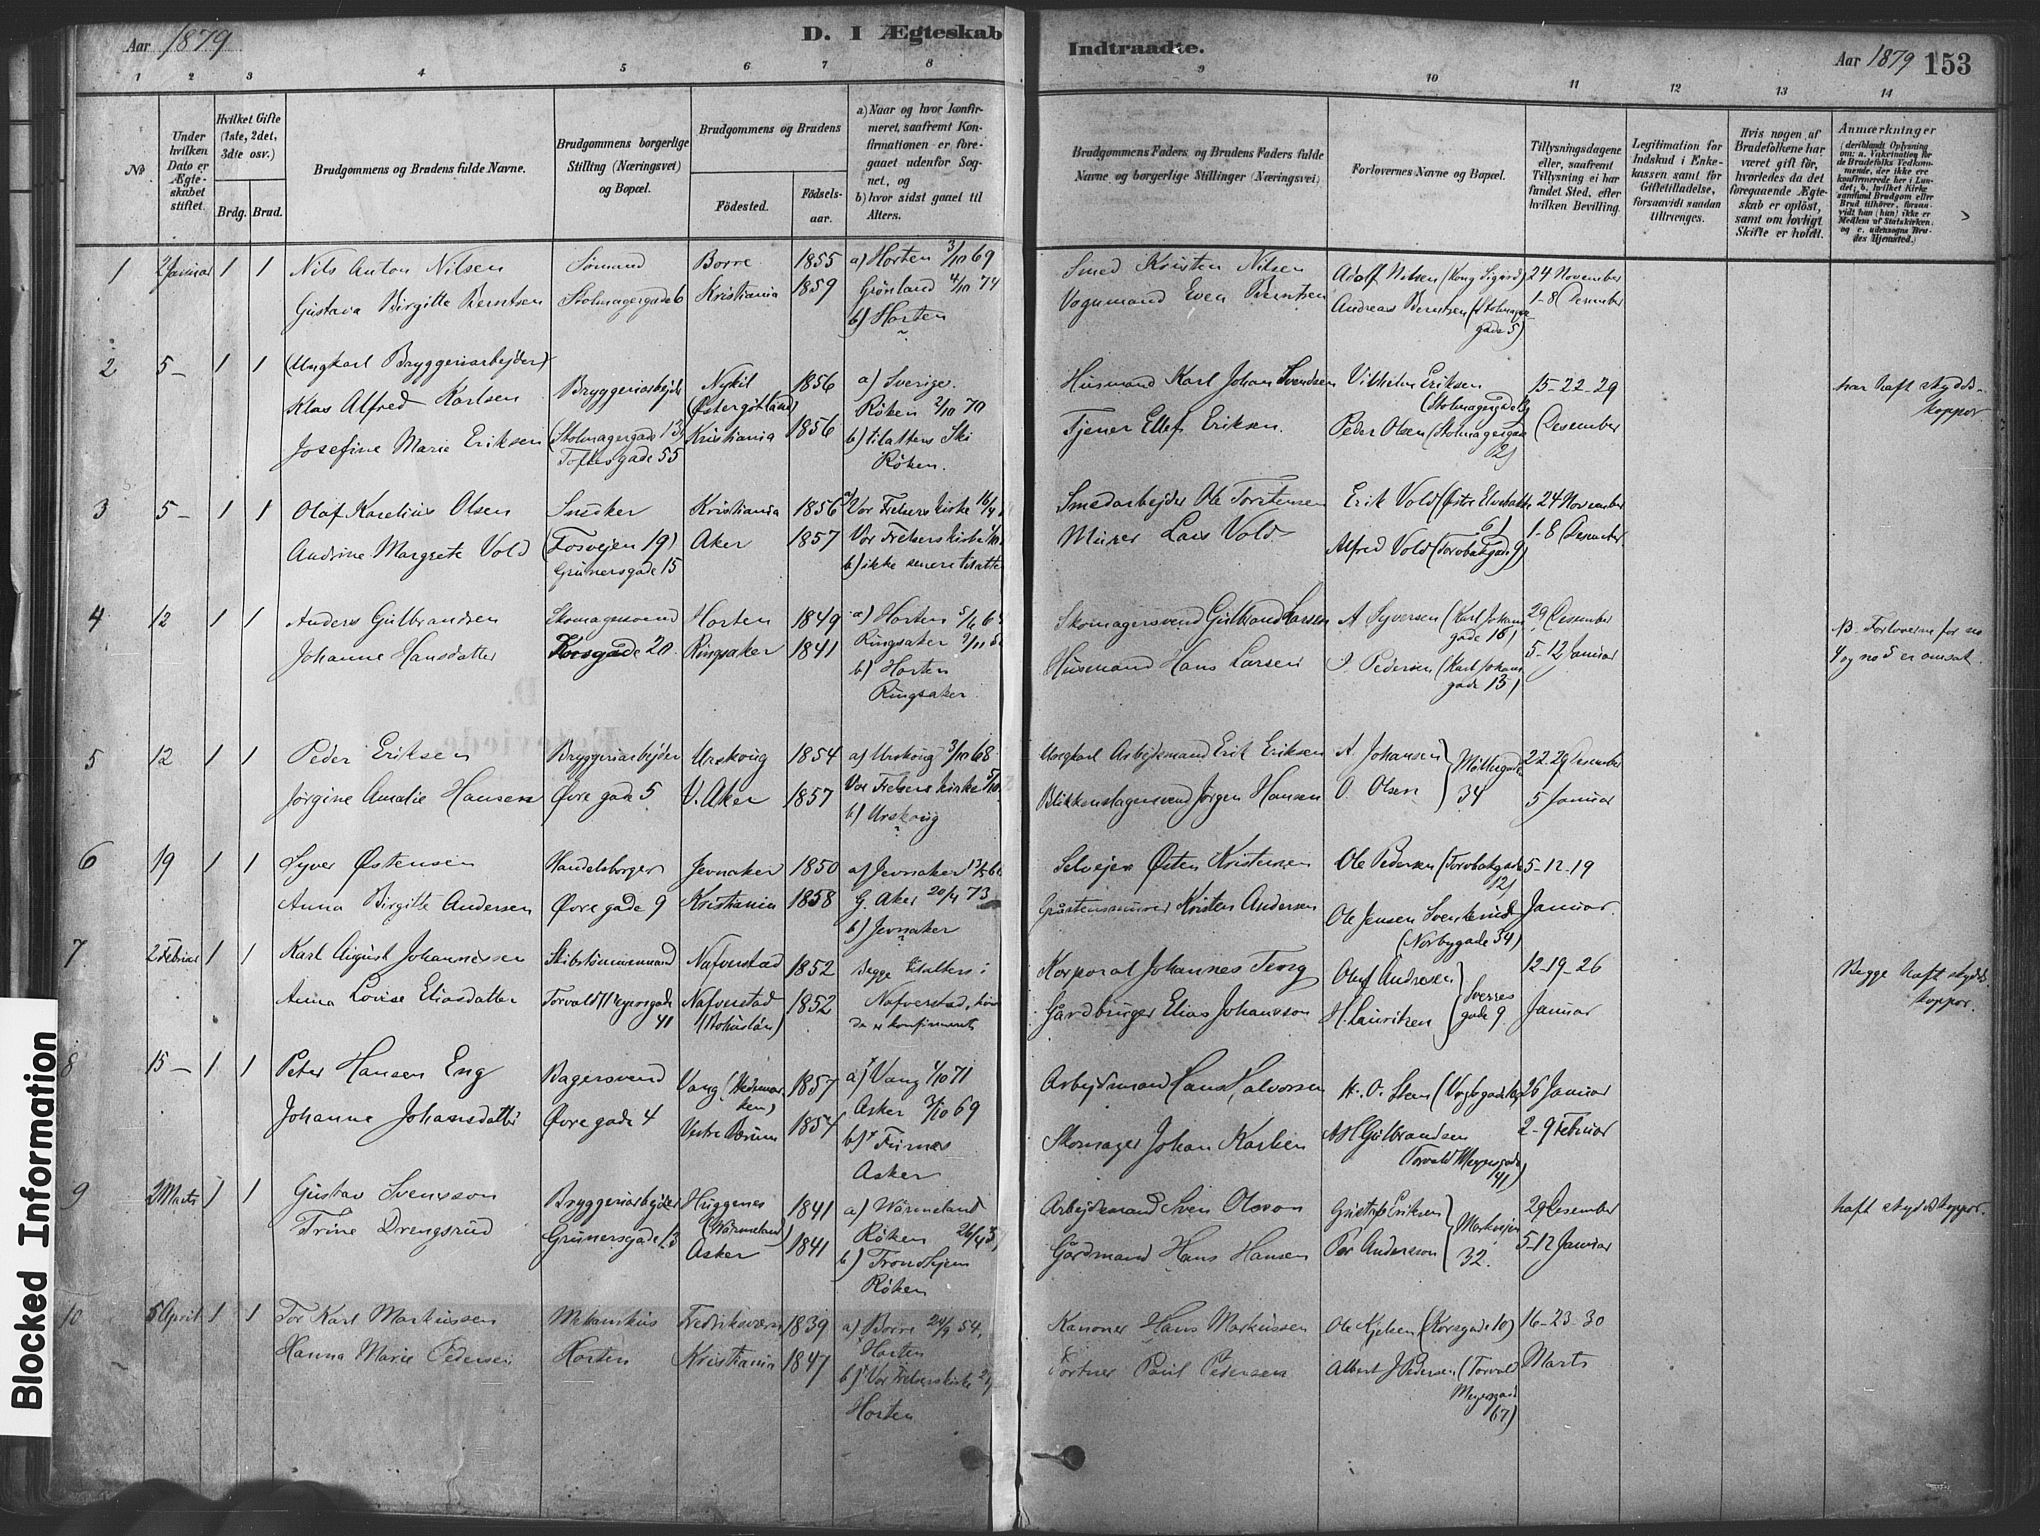 Aar 1879
D. I Ægteskab
Indtraadte.
Aar 1879 153
1 2 3 4 5 6 7 8 9 10 11 12 13 14
No
Under hvilken Dato er Ægteskabet stiftet.
Hvilket Gifte (1ste, 2det, 3die osv.)
Brdg. Brud.
Brudgommens og Brudens fulde Navne.
Brudgommens borgerlige Stilling (Næringsvei) og Bopæl.
Brudgommens og Brudens
Fødested.
Fødselsaar.
a) Naar og hvor konfirmeret, saafremt Konfirmationen er foregaaet udenfor Sognet, og
b) hvor sidst gaaet til Alters.
Brudgommens Faders og Brudens Faders fulde Navne og borgerlige Stillinger (Næringsvei)
Forlovernes Navne og Bopæl.
Tillysningsdagene eller, saafremt Tillysning ei har fundet Sted, efter hvilken Bevilling.
Legitimation for Indskud i Enkekassen samt for Giftetilladelse, forsaavidt saadan tiltrænges.
Hvis nogen af Brudefolkene har været gift før, hvorledes da det foregaaende Ægteskab er opløst, samt om lovligt Skifte er holdt.
Anmærkninger
1 2 Januar 1 1
Nils Anton Nilsen
Gustava Birgitte Berntsen
Sømand
Stolmagergade 6
Borre
Kristiania
1855
1859
a) Horten 3/10 69
Grønland 4/10 74
b) Horten
Smed Kristen Nilsen
Vognmand Even Berntsen
Adolf Nilsen (Kong Sigurd)
Andreas Berntsen (Stolmager
gade 5)
24 November
1-8 Desember
2 5- 1 1
(Ungkarl Bryggeriarbejder)
Klas Alfred Karlsen
Josefine Marie Eriksen
Bryggeriarbejder
(Stolmagergade 13)
Toftesgade 55
Nykil
(Østergøtland)
Kristiania
1856
1856
a) Sverige.
Røken 2/10 70
b) tilalters Ski
Røken.
Husmand Karl Johan Svendsen
Tjener Ellef Eriksen.
Vilhelm Eriksen
(Stolmagergade
Peder Olsen (Stolmagergade
12)
15-22-29
Desember
har haft skydds-
koppor
3 5- 1 1
Olaf Karelius Olsen
Andrine Margrete Vold
Snedker
(Fosvejen 19)
Grünersgade 15
Kristiania
Aker
1856
1857
Vor Frelsers kirke 16/4
Vor Frelsers kirke
b) ikke senere tilalters
Smedarbejder Ole Torstensen
Murer Lars Vold
Erik Vold (Østre Elvebakke
6)
Alfred Vold (Torvbakgade 9)
24 November
1-8 Desember
4 12 1 1
Anders Gulbrandsen
Johanne Hansdatter
Skomagersvend
Korsgade 20
Horten
Ringsaker
1849
1841
a) Horten 5/6 6
Ringsaker 2/11
b) Horten
Ringsaker
Skomagersvend Gulbrand Larsen
Husmand Hans Larsen
A Syversen (Karl Johans
gade 16)
I Pedersen (Karl Johans
gade 13)
29 Desember
5-12 Januar
NB. Forloverne for no
4 og no 5 er omsat.
5 12 1 1
Peder Eriksen
Jørgine Amalie Hansen
Bryggeriarbejder
Øvre gade 5
Urskoug
V. Aker
1854
1857
a) Urskoug 3/10 68
Vor Frelsers kirke 5/10
b) Urskoug
Ungkarl Arbejdsmand Erik Eriksen
Blikkenslagersvend Jørgen Hansen
A. Johansen
O. Olsen
Møllergade
34
22 29 Desember
5 Januar
6 19 1 1
Syver Østensen
Anna Birgitte Andersen
Handelsborger
Øvre gade 9
Jevnaker
Kristiania
1850
1858
a) Jevnaker
G. Aker 20/4 73
b) Jevnaker
Selvejer Østen Kristensen
Gråstensmurer Kristen Andersen
Ole Pedersen (Torvbakgade
12)
Ole Jensen Svenkerud
(Norbygade 34)
5-12-19
Januar
7 2 Februar 1 1
Karl August Johannessen
Anna Lovise Eliasdatter
Skibstømmermand
Torvald Meyersgade
41
Nafverstad
Nafverstad
(Bohuslän)
1852
1852
Begge tilalters i
Nafverstad, hvor
de er konfirmert
Korporal Johannes Teng
Gårdbruger Elias Johansson
Oluf Andresen
H. Lauritzen
Sverres
gade 9
12-19-26
Januar
Begge haft skydds
koppor.
8 15- 1 1
Peter Hansen Eng
Johanne Johansdatter
Bagersvend
Øvre gade 4
Vang (Hedemar
ken)
Vestre Bærum
1857
1854
a) Vang 1/10 71
Asker 3/10 69
b) Furnes
Asker
Arbejdsmand Hans Halvorsen
Skomager Johan Karlsen
H. O. Steen (Vogtsgade
A H Gulbrandsen
(Torvald Meyersgade
41)
26 Januar
2-9 Februar
9 2 Marts 1 1
Gustav Svensson
Trine Drengsrud
Bryggeriarbejder
Grünersgade 13
Huggenes
(Wärmeland)
Asker
1841
1841
a) Wärmeland
Røken 26/4
b) Trondhjem
Røken
Arbejdsmand Sven Olsson
Gårdmand Hans Hansen
Gustaf Eriksen
Per Andersson
Markvejen
32.
29 Desember
5-12 Januar
haft skyddskoppor.
10 5 April 1 1
Tor Karl Markussen
Hanna Marie Pedersen
Mekanikus
Horten
Fredriksværn
Kristiania
1839
1847
a) Borre 24/9 54,
Horten
b) Vor Frelsers kirke
Horten
Kanoner Hans Markussen
Gartner Paul Pedersen
Ole Kjelsen (Korsgade 10)
Albert J Pedersen (Torvald
Meyersgade
67)
16-23-30
Marts
Blocked Information